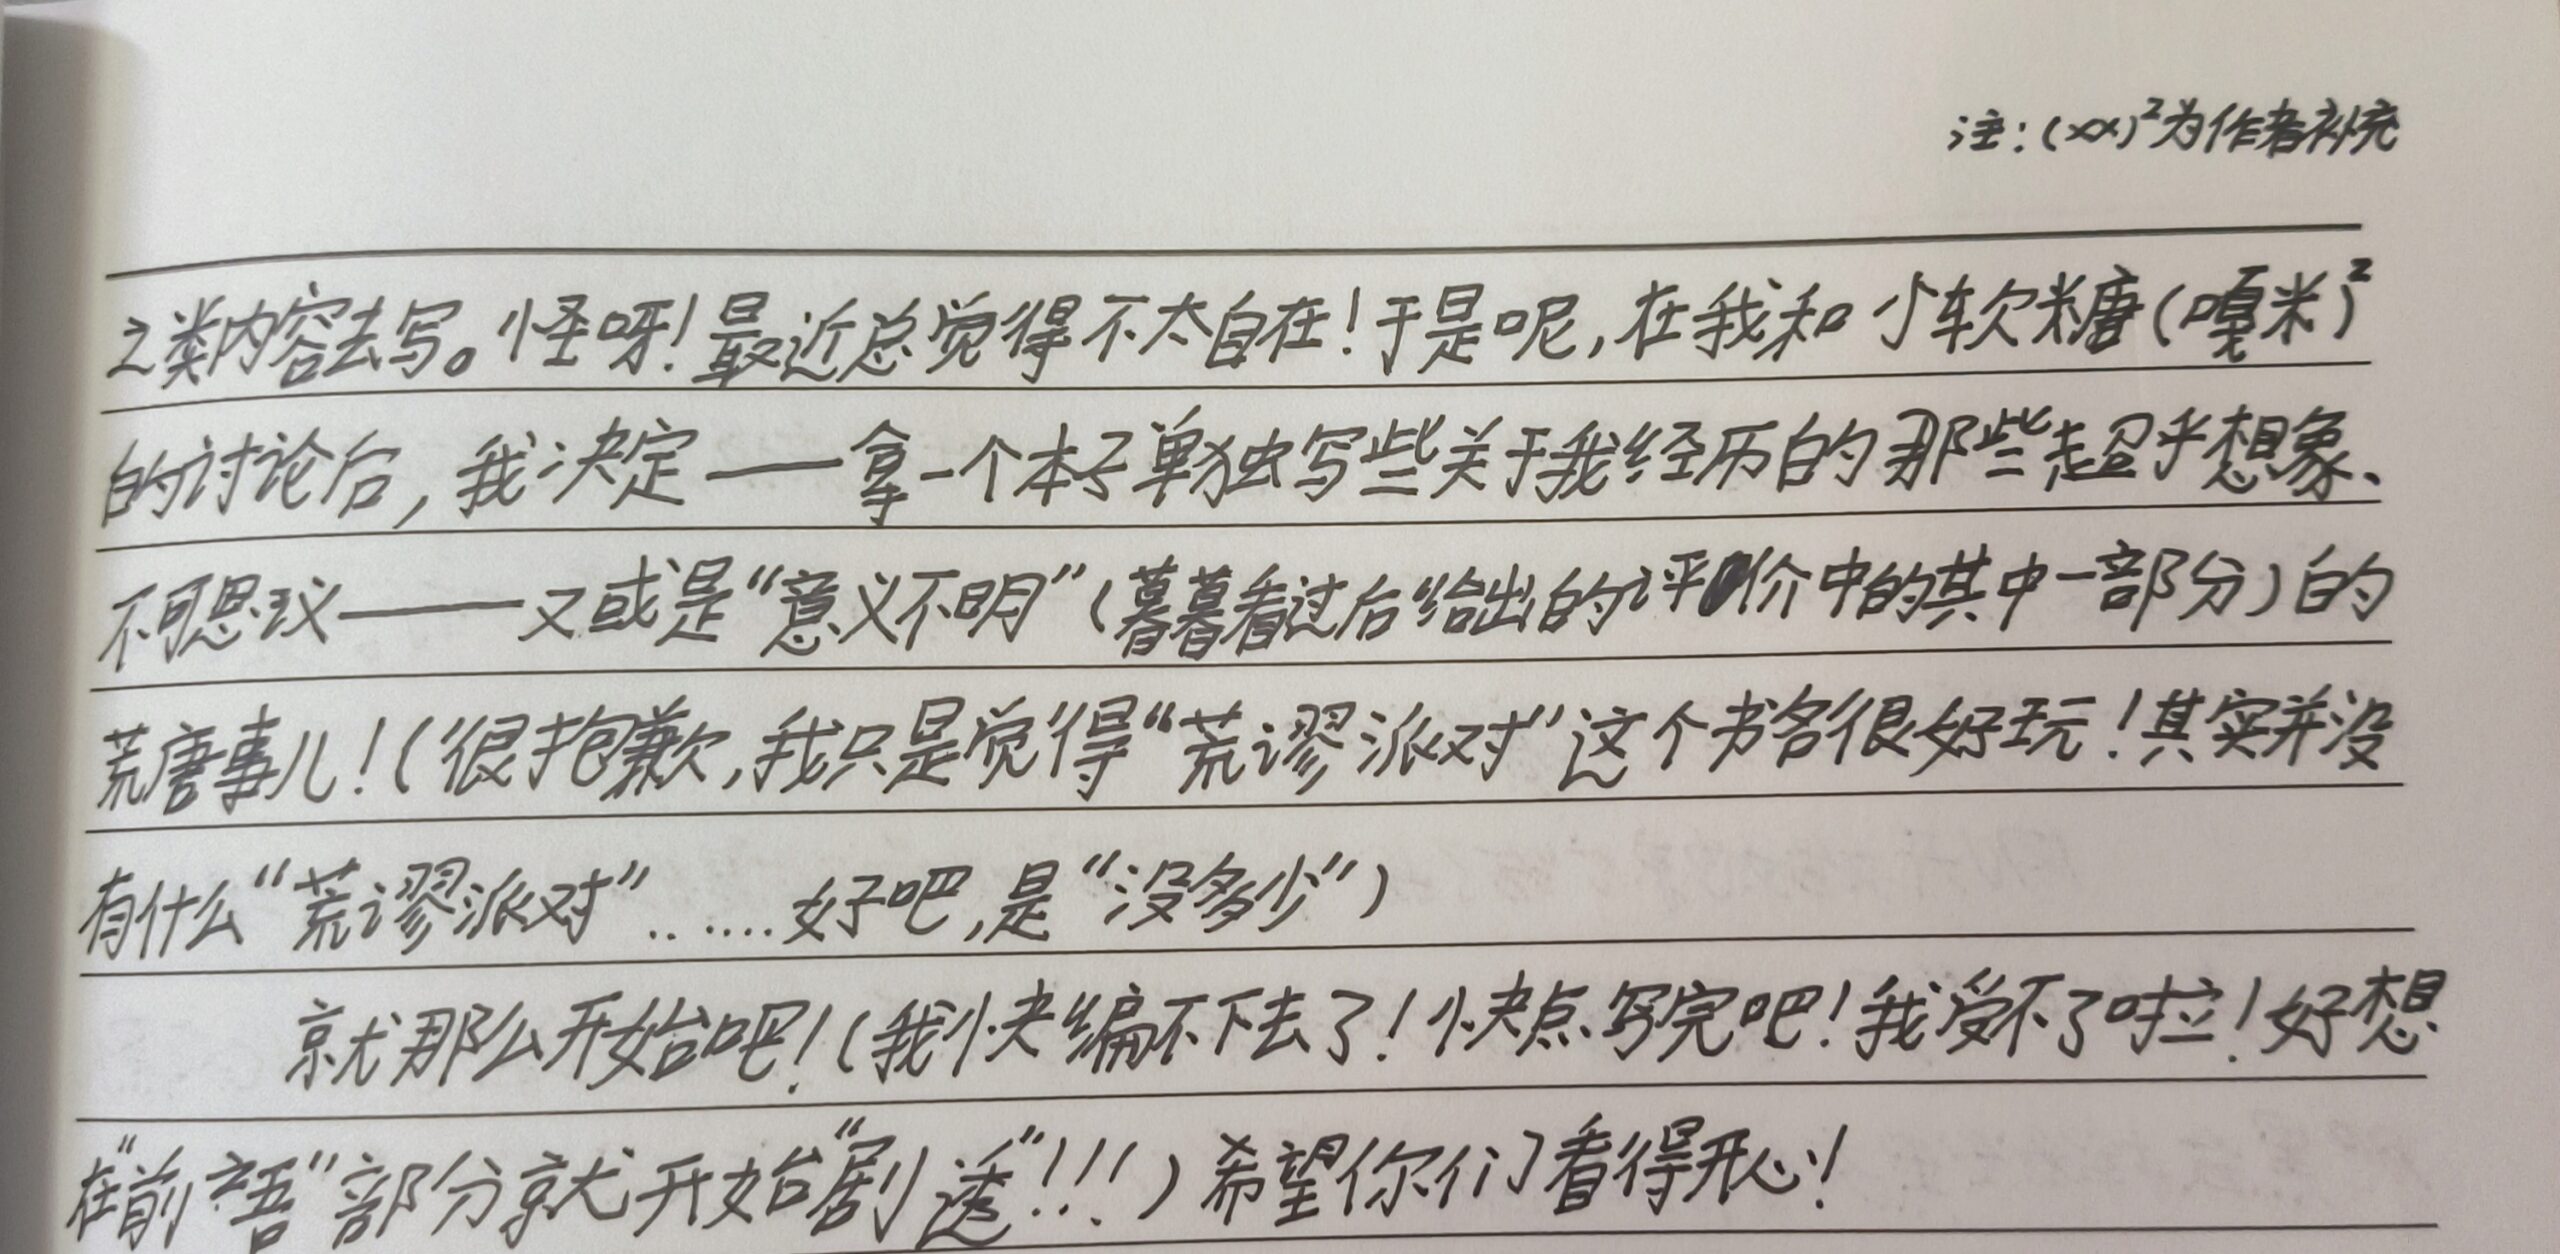 注：(xx)²为作者补充
之类内容去写。怪呀！最近总觉得不太自在！于是呢，在我和小软糖（嘎米）²
的讨论后，我决定——拿一个本子单独写些关于我经历的那些超乎想象、
不可思议——又或是“意义不明”（暮暮看过后给出的评价中的其中一部分）的
荒唐事儿！（很抱歉，我只是觉得“荒谬派对”这个书名很好玩！其实并没
有什么“荒谬派对”……好吧，是“没多少”）
就那么开始吧！（我快编不下去了！快点写完吧！我受不了啦！好想
在“前言”部分就开始“剧透”！！！）希望你们看得开心！